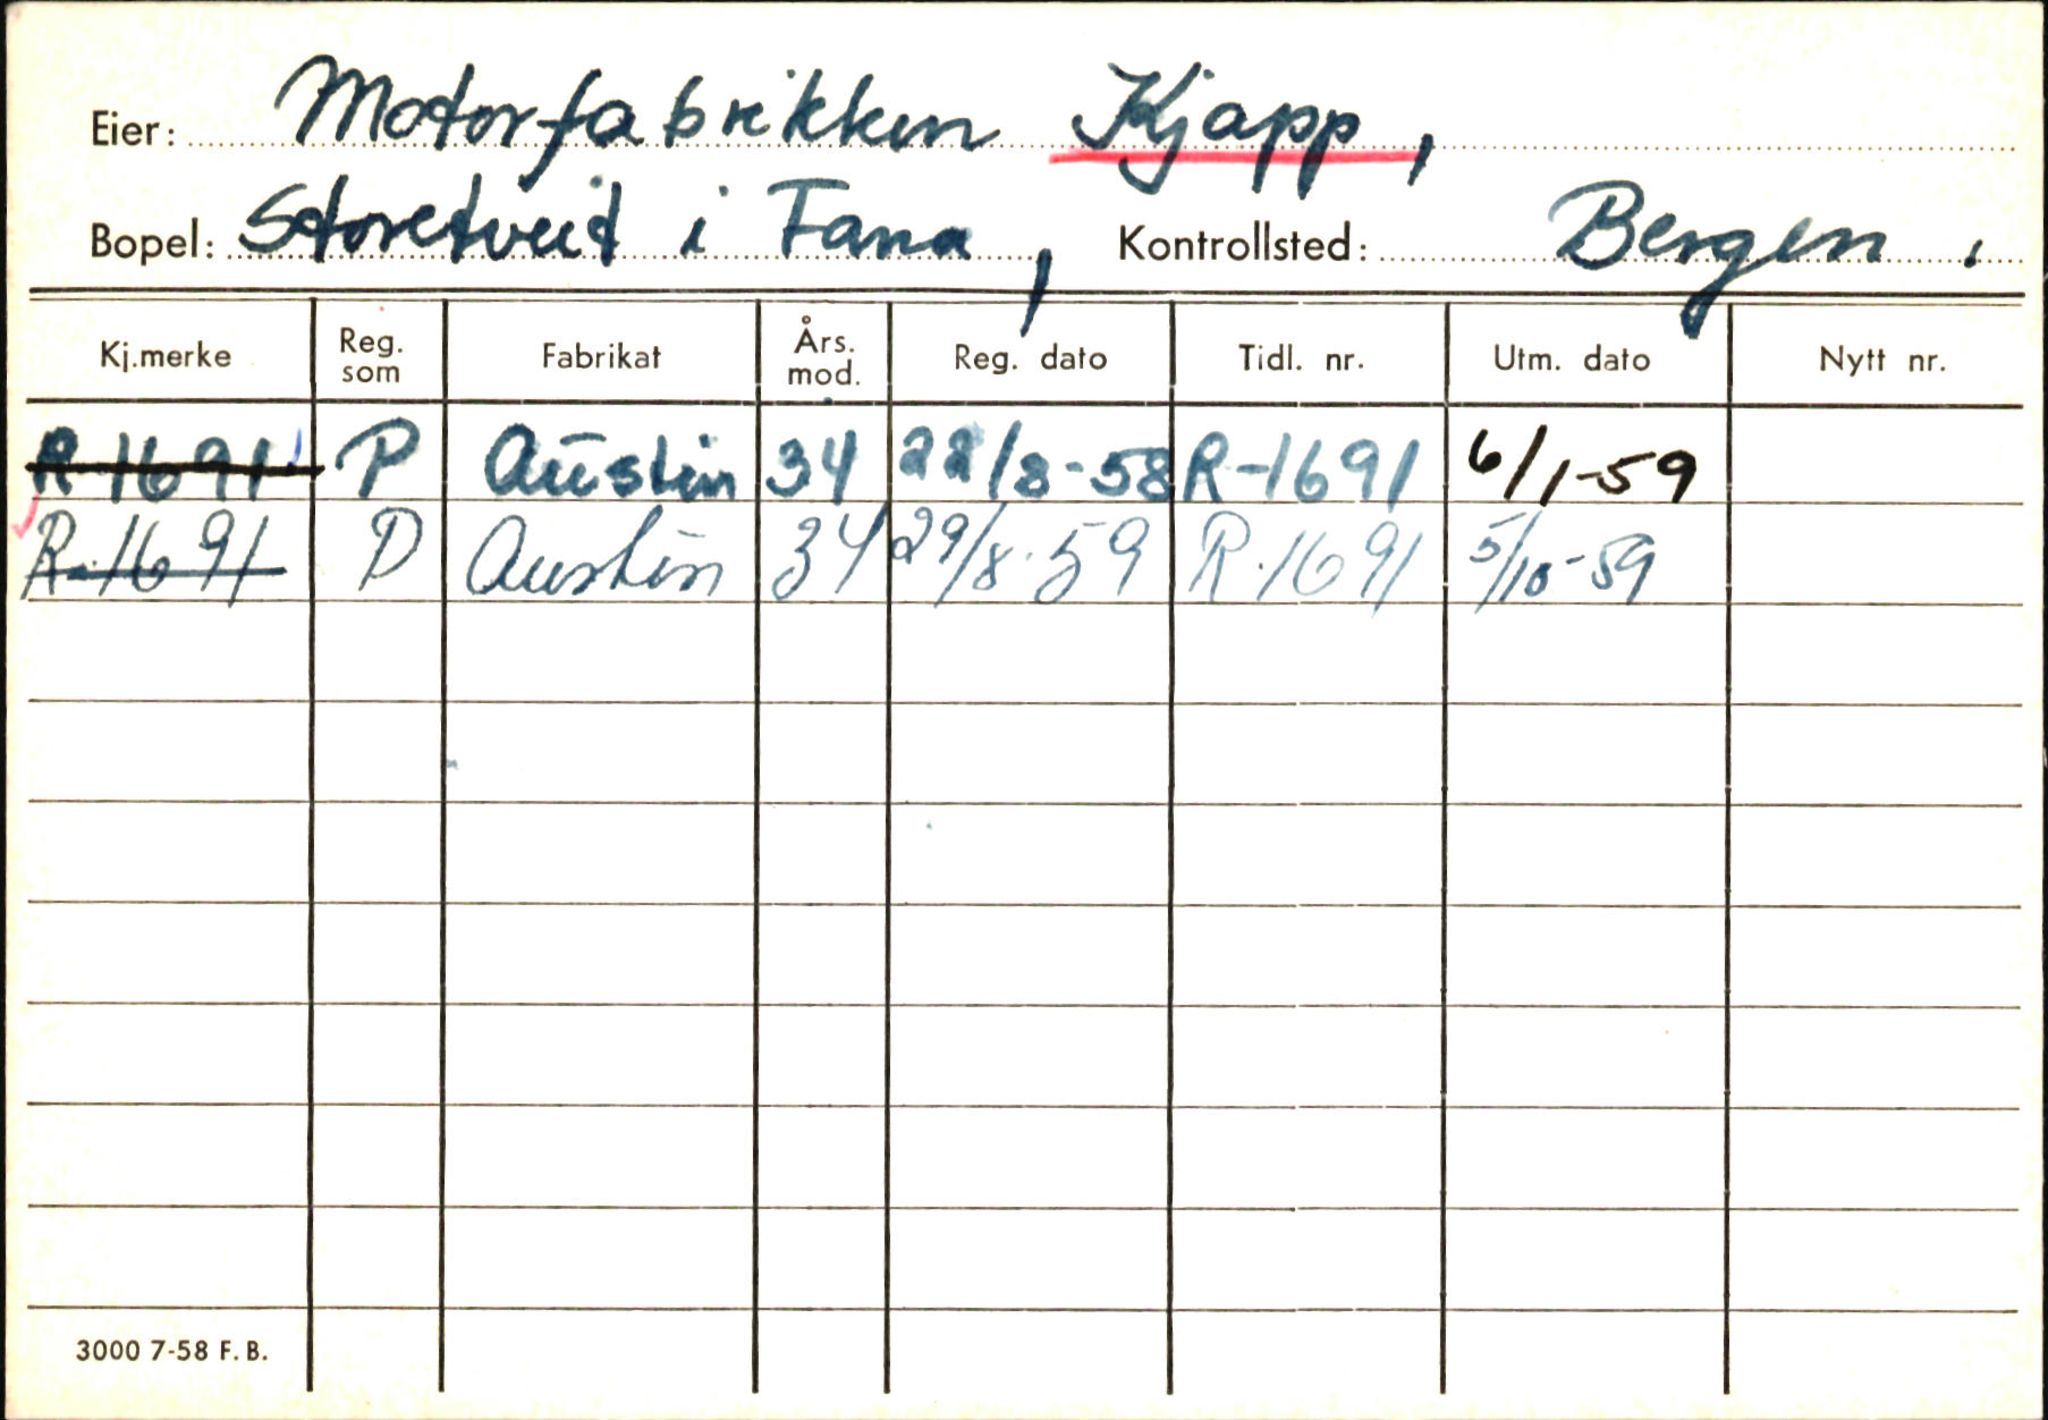 Eier: Motorfabrikken Kjapp,
Bopel: Storetveit i Fana, Kontrollsted: Bergen.
Kj.merke Reg. som Fabrikat Års. mod. Reg. dato Tidl. nr. Utm. dato Nytt nr.
R-1691 P Austin 34 22/8-58 R-1691 6/1-59
R-1691 P Austin 34 29/8-59 R-1691 5/10-59
3000 7-58 F. B.